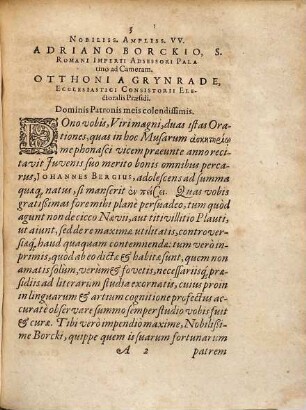 3
NOBILISS. AMPLISS. VV.
ADRIANO BORCKIO, S.
ROMANI IMPERI ADSESSORI PALA
tino ad Cameram.
OTTHONI A GRYNRADE,
ECCLESIASTICI CONSISTORII ELE-
ctoralis Præsidi.
Dominis Patronis meis colendissimis.
DOno vobis, Viri magni, duas istas Ora
tiones, quas in hoc Musarum
me phonasci vicem præeunte anno reci
tavit Juvenis suo merito bonis omnibus per ca-
rus, JOHANNES BERGIUS, adolescens ad summa
quæq, natus, si manserit Quas vobis
gratissimas fore mihi plane persuadeo, tum quòd
agunt non de cicco Nævii, aut titivillitio Plauti,
ut aiunt, sed de re maxima utilitatis, controver-
siaq, haud quaquam contemnendæ: tum verò in-
primis, quod ab eo dictæ & habitæ sunt, quem non
amatis solùm, verumè fovetis, necessariisq, præ-
sidiis ad literarum studia exornatis, cuius proin
in linguarum & artium cognitione profectus ac-
curatè observare summo semper studio vobis fuit
& curæ. Tibi verò impendio maxime, Nobilissi-
me Borcki, quippe quem is suarum fortunarum
A 2 patrem